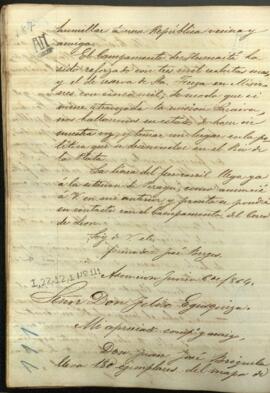 humillar á una República vecina y
amiga.
El Campamento de Humaitá ha
sido reforzado con tres mil reclutas mas,
y el de reserva de la
con cinco mil, de modo que si
viene atrasada la mision
nos hallaremos en estado de hacer
nuestra voz y tomar un lugar en la po-
litica que se desenvuelve en el Rio de
la Plata.
La linea del ferrocarril llega ya
á la altura de Pirayú, como anuncié
á V. en mi anterior, y pronto se pondrá
en contacto con el campamento del Cerro
de Leon.
Soy de V. etc.
firmado José Berges.
Asuncion Junio 6 de 1864.
I,22,12,1 Nº 111
Señor Don Felix Egusquiza.
Mi apreciado compº y amigo,
Don Juan José Brizuela
lleva 180 ejemplares del mapa de